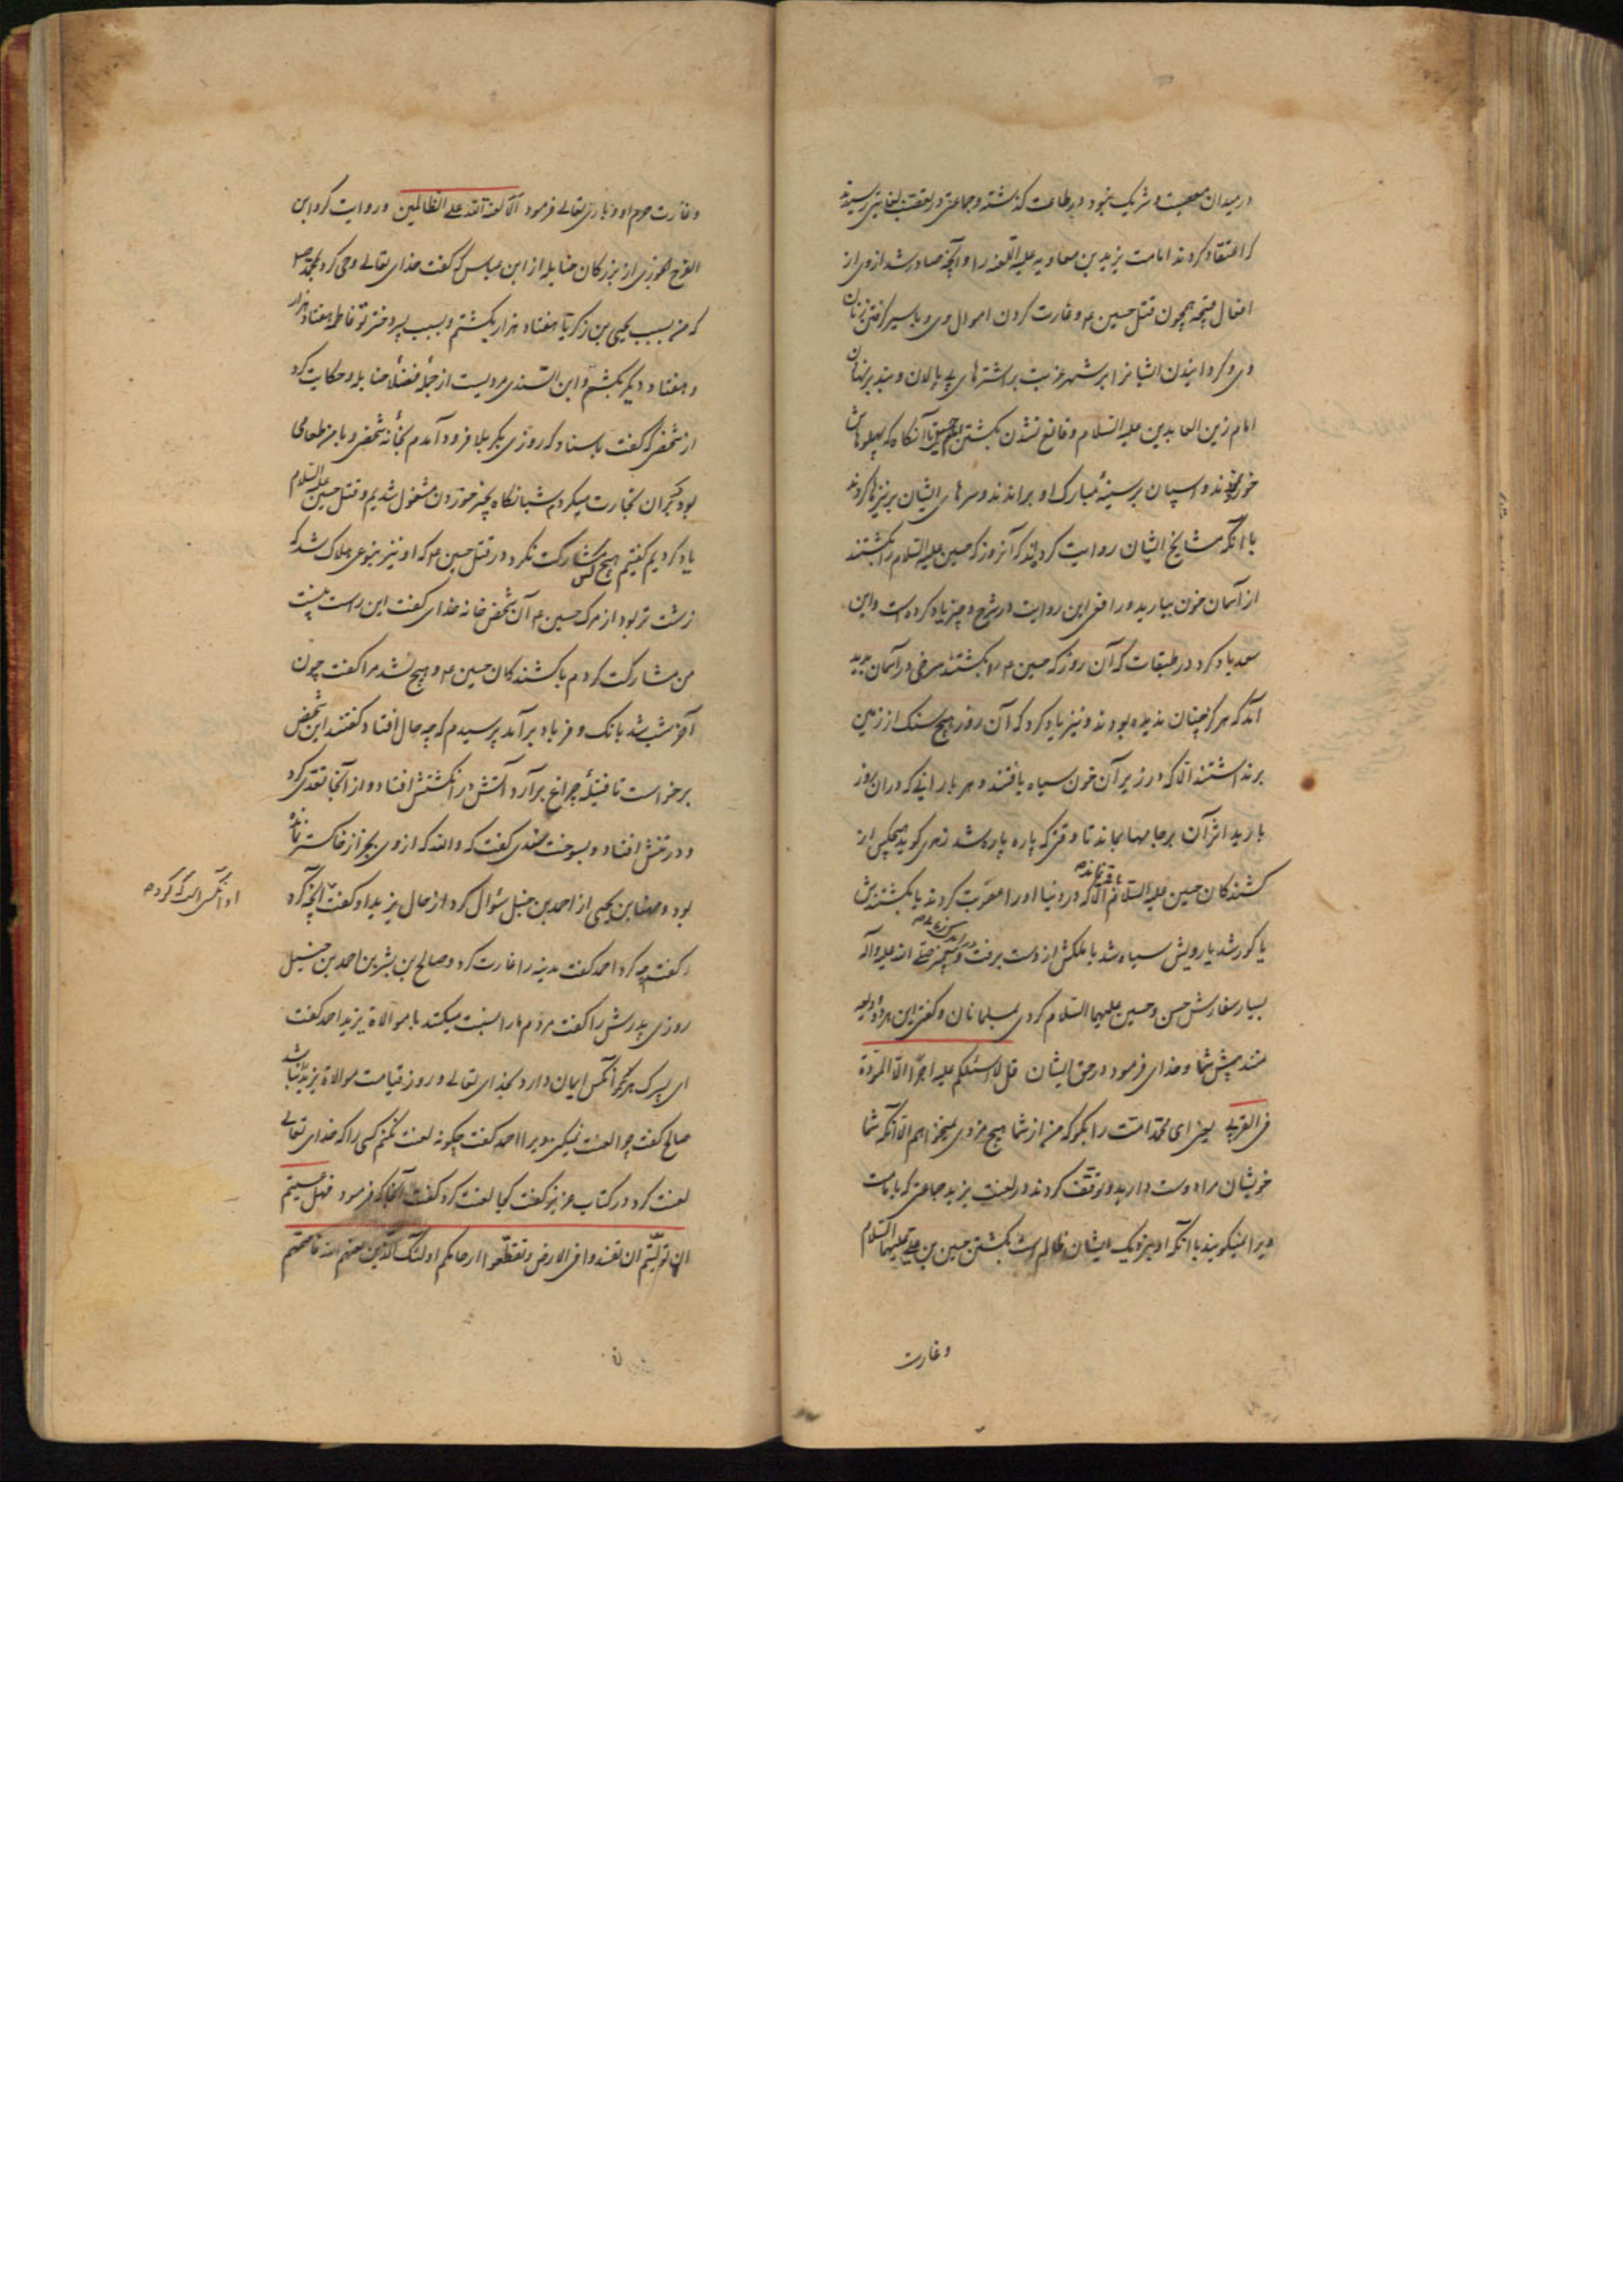 در میدان معصیت و شریک نبود در طاعت گذشته و جماعتی در تعصب بغایتی رسیدند
که اعتقاد کردند امامت یزید بن معاویه علیه اللعنه را و آنچه صادر شد از وی از
افعال قبیحه همچون قتل حسین ع و غارت کردن اموال وی و باسیر گرفتن زنان
وی و گردانیدن ایشانرا بر شهر عربت بر اشترهای بی پالان و بند بر نهادن
امام زین العابدین علیه السلام و قانع نشدن بکشتن حسین آنگاه که پهلوهاش
خورد کردند و اسپان بر سینهٔ مبارک او براندند و سرهای ایشان بر نیزها کردند
با آنکه مشایخ ایشان روایت کرده‌اند که آنروز که حسین علیه السلام را بکشتند
از آسمان خون ببارید و رافعی این روایت در شرح وجیز یاد کرده است و ابن
سعد یاد کرد در طبقات که آن روز که حسین ع را بکشتند سرخی در آسمان پدید
آمد که هرگز چنان ندیده بودند و نیز یاد کرد که آن روز هیچ سنگ از زمین
برنداشتند الا که در زیر آن خون سیاه یافتند و هر بارانی که در ان روز
بارید اثر آن بر جامها بماند تا وقتی که پاره پاره شد زهری گوید هیچکس از
کشندگان حسین علیه السلام باقی نماند الا که در دنیا او را عقوبت کردند یا بکشتندش
یا کور شد یا رویش سیاه شد یا ملکش از دست برفت و پیغمبر صلی الله علیه و آله
بسیار سفارش حسن و حسین علیهما السلام کردی بمسلمانان و گفتی این هر دو ودیعه
منند پیش شما و خدای فرمود در حق ایشان قل لا اسئلکم علیه اجرا الا المودة
فی القربی یعنی ای محمد امتت را بگو که من از شما هیچ مزدی نمیخواهم الا آنکه شما
خویشان مرا دوست دارید و توقف کردند در لعنت یزید جماعتی که بامامت
ویرا نمیگویند با آنکه او بنزدیک ایشان ظالم است بکشتن حسین بن علی علیهما السلام
و غارت
و غارت حرم او و باری تعالی فرمود الا لعنة الله علی الظالمین و روایت کرد ابن
الفرج الجوزی از بزرگان حنابله از ابن عباس که گفت خدای تعالی وحی کرد بمحمد ص
که من بسبب یحیی بن زکریا هفتاد هزار بکشتم و بسبب پسر دختر تو فاطمه هفتاد هزار
و هفتاد دیگر بکشم و ابن السندی مردیست از جملهٔ فضلاء حنابله و حکایت کرد
از شخصی که گفت باسناد که روزی بکربلا فرود آمدم بخانهٔ شخصی و با من طعامی
بود که بران تجارت میکردم شبانگاه بچیز خوردن مشغول شدیم و قتل حسین علیه السلام
یاد کردیم گفتیم هیچ کس مشارکت نکرد در قتل حسین ع که او نیز بنوعی هلاک شد که
زشت تر بود از مرگ حسین ع آن شخص خانه خدای گفت این راست نیست
من مشارکت کردم با کشندگان حسین ع و هیچ نشد مرا گفت چون
آخر شب شد بانگ و فریاد برآمد پرسیدم که چه حال افتاد گفتند این شخص
برخواست تا فتیلهٔ چراغ برآرد آتش در انگشتش افتاد و از آنجا تعدی کرد
و در تنش افتاد و بسوخت سندی گفت که والله که از وی بجز از خاکستر نمانده
بود و مهنا بن یحیی از احمد بن حنبل سؤال کرد از حال یزید او گفت آنچه کرد
او آنکس است که کرد
گفت چه کرد احمد گفت مدینه را غارت کرد و صالح بن بشر بن احمد بن حنبل
روزی پدرش را گفت مردم ما را نسبت میکنند با موالاة یزید احمد گفت
ای پسرک هرگز آنکس ایمان دارد بخدای تعالی و روز قیامت موالاة یزیدش باشد
صالح گفت چرا لعنت نمیکنی ویرا احمد گفت چگونه لعنت نکنم کسی را که خدای تعالی
لعنت کرد در کتاب عزیز گفت کجا لعنت کرد گفت آنجا که فرمود فهل عسیتم
ان تولیتم ان تفسدوا فی الارض و تقطعوا ارحامکم اولئک الذین لعنهم الله فاصمهم